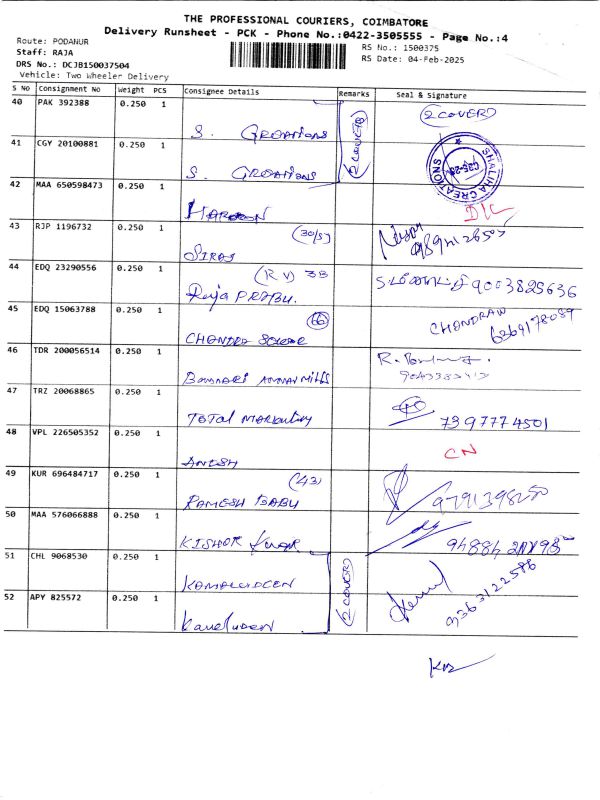 THE PROFESSIONAL COURIERS, COIMBATORE
Delivery Runsheet - PCK - Phone No.:0422-3505555 - Page No.:4
Route: PODANUR
RS No.: 1500375
Staff: RAJA
RS Date: 04-Feb-2025
DRS No.: DCJB150037504
Vehicle: Two Wheeler Delivery
S No Consignment No Weight PCS Consignee Details Remarks Seal & Signature
40 PAK 392388 0.250 1 S. CREATIONS (2 COVER) (2 COVER)
41 CGY 20100881 0.250 1 S. CREATIONS SHALIHA CREATIONS
42 MAA 650598473 0.250 1 HAROON D/L
43 RJP 1196732 0.250 1 (30/5) SIRAJ
44 EDQ 23290556 0.250 1 (R V) 38 Raja PRABU. 9003825636
45 EDQ 15063788 0.250 1 (66) CHANDRA SEKAR CHANDRAN 6369178059
46 TDR 200056514 0.250 1 BANNARI AMMAN MILLS
47 TRZ 20068865 0.250 1 TOTAL Marketing 7397774501
48 VPL 226505352 0.250 1 ANISH CN
49 KUR 696484717 0.250 1 (43) RAMESH BABU
50 MAA 576066888 0.250 1 KISHOR Kumar
51 CHL 9068530 0.250 1 KAMALUDEEN (2 COVER)
52 APY 825572 0.250 1 9363122586